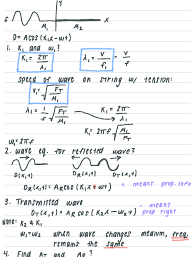 y
μ₁ μ₂ x
D = A cos(K₁x - ωt)
1. K₁ and ω₁?
K₁ = 2π/λ₁ λ₁ = V/f₁ = V/f
speed of wave on string w/ tension:
V₁ = √(F_T/μ₁)
λ₁ = 1/f √(F_T/μ₁) K₁ = 2π/λ₁
K₁ = 2πf √(μ₁/F_T)
ω₁ = 2πf
2. wave eq. for reflected wave?
D(x,t) D_R(x,t)
D_R(x,t) = A_R cos(K₁x + ωt) + means prop. left
3. Transmitted wave - means
D_T(x,t) = A_T cos(K₂x - ω₂t) prop right
Note: K₂ ≠ K₁
ω₁ = ω₂ when wave changes medium, freq.
remains the same
4. Find A_T and A_R?